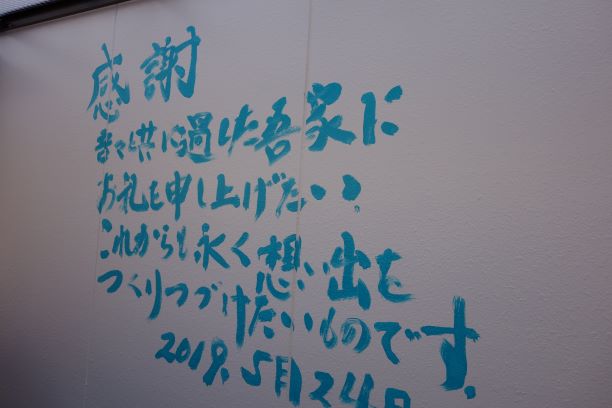 感謝
吾々と共に過した吾家に
お礼を申し上げたい。
これからも永く想い出を
つくりつづけたいものです。
2019.5月24日